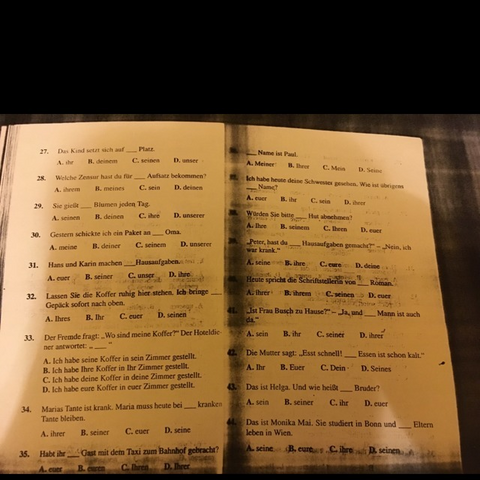 27. Das Kind setzt sich auf ___ Platz.
A. ihr B. deinem C. seinen D. unser
28. Welche Zensur hast du für ___ Aufsatz bekommen?
A. ihrem B. meines C. sein D. deinen
29. Sie gießt ___ Blumen jeden Tag.
A. seinen B. deinen C. ihre D. unserer
30. Gestern schickte ich ein Paket an ___ Oma.
A. meine B. deiner C. seinem D. unserer
31. Hans und Karin machen ___ Hausaufgaben.
A. euer B. seiner C. unser D. ihre
32. Lassen Sie die Koffer ruhig hier stehen. Ich bringe ___
Gepäck sofort nach oben.
A. Ihres B. Ihr C. euer D. seinen
33. Der Fremde fragt: „Wo sind meine Koffer?" Der Hoteldie-
ner antwortet: „ ___ "
A. Ich habe seine Koffer in sein Zimmer gestellt.
B. Ich habe Ihre Koffer in Ihr Zimmer gestellt.
C. Ich habe deine Koffer in deine Zimmer gestellt.
D. Ich habe eure Koffer in euer Zimmer gestellt.
34. Marias Tante ist krank. Maria muss heute bei ___ kranken
Tante bleiben.
A. ihrer B. seiner C. euer D. seine
35. Habt ihr ___ Gast mit dem Taxi zum Bahnhof gebracht?
A. euer B. euren C. Ihren D. Ihrer
___ Name ist Paul.
A. Meiner B. Ihrer C. Mein D. Seine
Ich habe heute deine Schwester gesehen. Wie ist übrigens
___ Name?
A. euer B. ihr C. sein D. ihrer
Würden Sie bitte ___ Hut abnehmen?
A. Ihre B. seinem C. Ihren D. euer
„Peter, hast du ___ Hausaufgaben gemacht?" – „Nein, ich
war krank."
A. seine B. ihre C. euro D. deine
Heute spricht die Schriftstellerin von ___ Roman.
A. ihrer B. ihrem C. seinen D. euer
„Ist Frau Busch zu Hause?" – „Ja, und ___ Mann ist auch
da."
A. sein B. ihr C. seiner D. ihrer
42. Die Mutter sagt: „Esst schnell! ___ Essen ist schon kalt."
A. Ihr B. Euer C. Dein D. Seines
43. Das ist Helga. Und wie heißt ___ Bruder?
A. sein B. seiner C. ihr D. euer
44. Das ist Monika Mai. Sie studiert in Bonn und ___ Eltern
leben in Wien.
A. seine B. eure C. ihre D. seinen